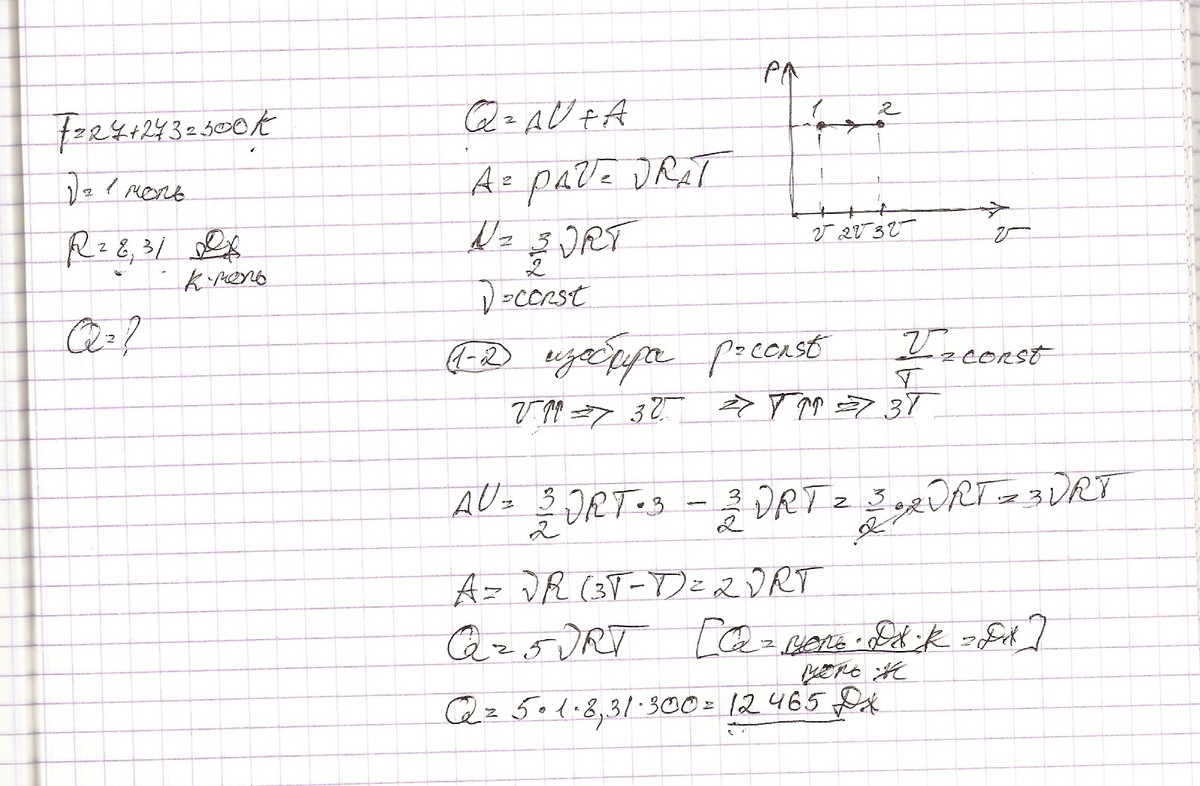 T=27+273=300K
ν=1 моль
R=8,31 Дж/К·моль
Q=?
Q=ΔU+A
A=pΔV=νRΔT
U=3/2 νRT
ν=const
P
1 2
V 2V 3V V
(1-2) изобара p=const V/T=const
V↑↑ ⇒ 3V ⇒ T↑↑ ⇒ 3T
ΔU= 3/2 νRT·3 − 3/2 νRT = 3/2·2νRT=3νRT
A= νR(3T−T)=2νRT
Q=5νRT [Q= моль·Дж·К/моль·К =Дж]
Q=5·1·8,31·300=12465 Дж